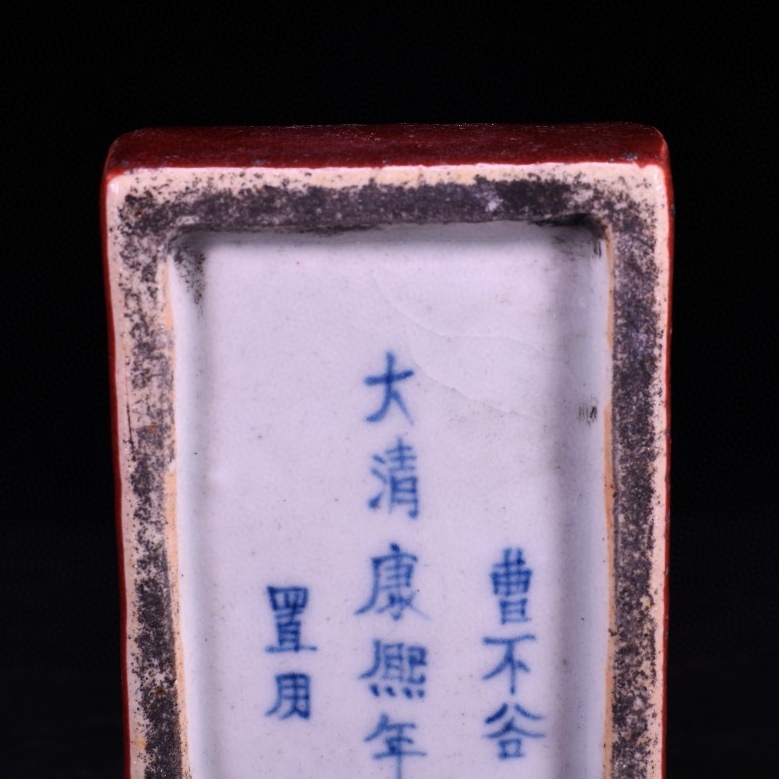 曹不谷
大清康熙年
置用